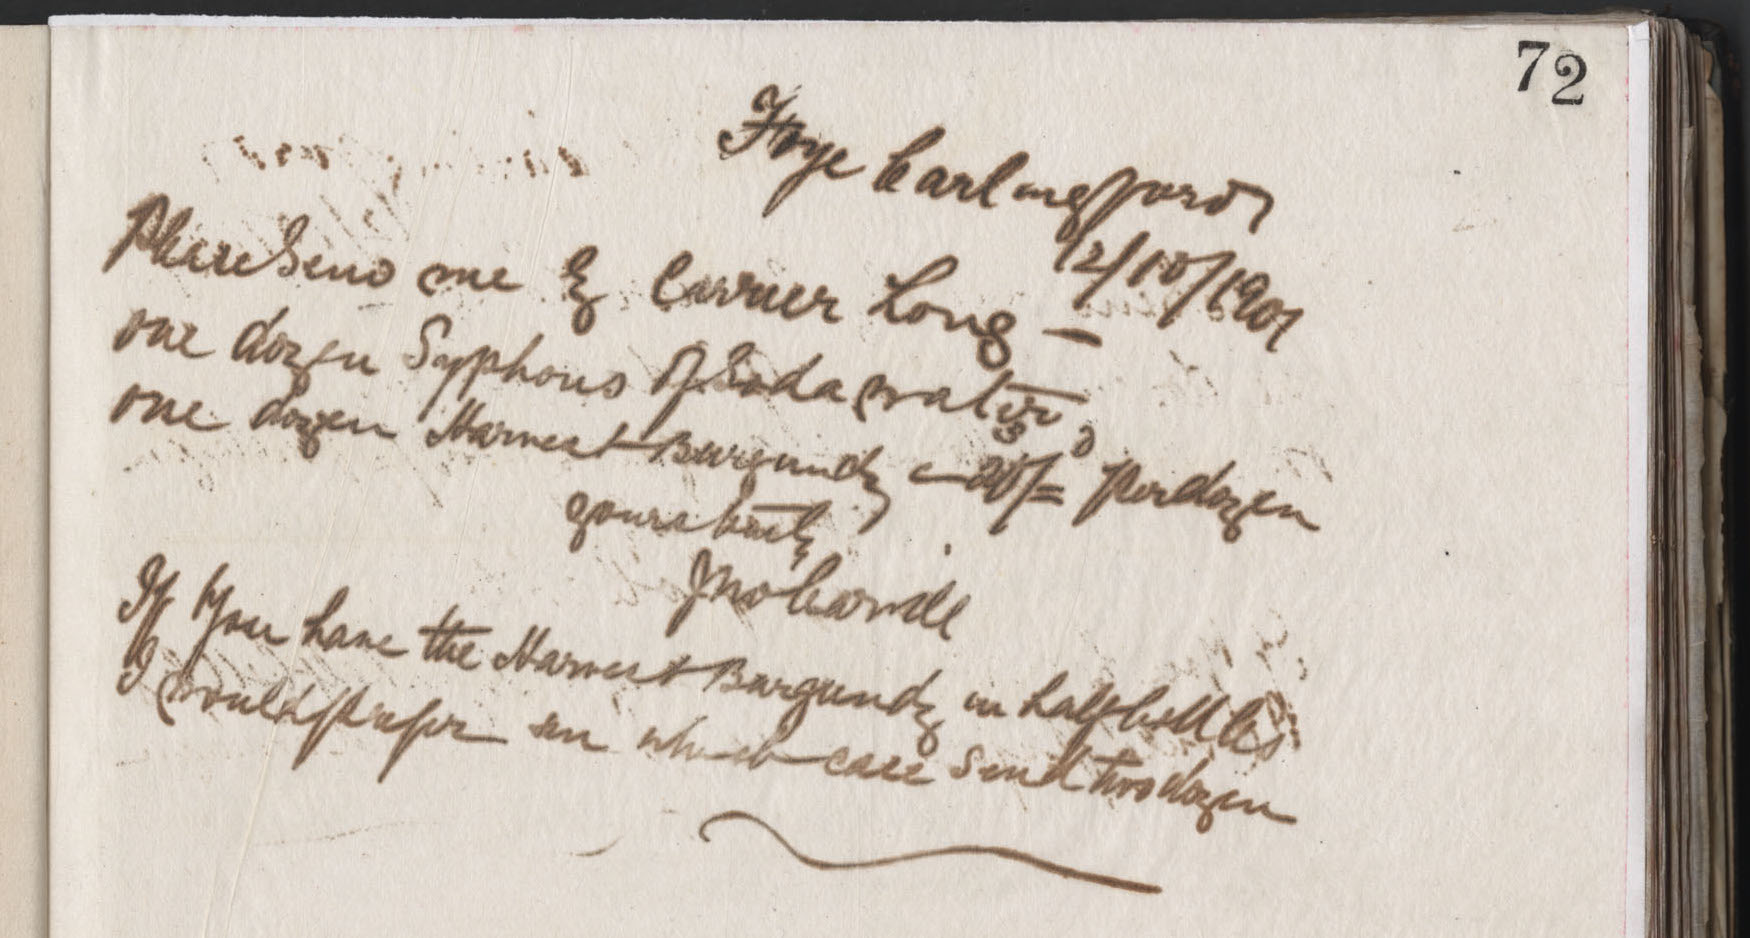 72
Foye Carlingford
12/10/1901
Please Send me by Carrier Long —
one dozen Syphons of Soda water
one dozen Harvest Burgundy 20/= per dozen
yours truly
Jno
If you have the Harvest Burgundy in half bottles
I would prefer in which case send two dozen